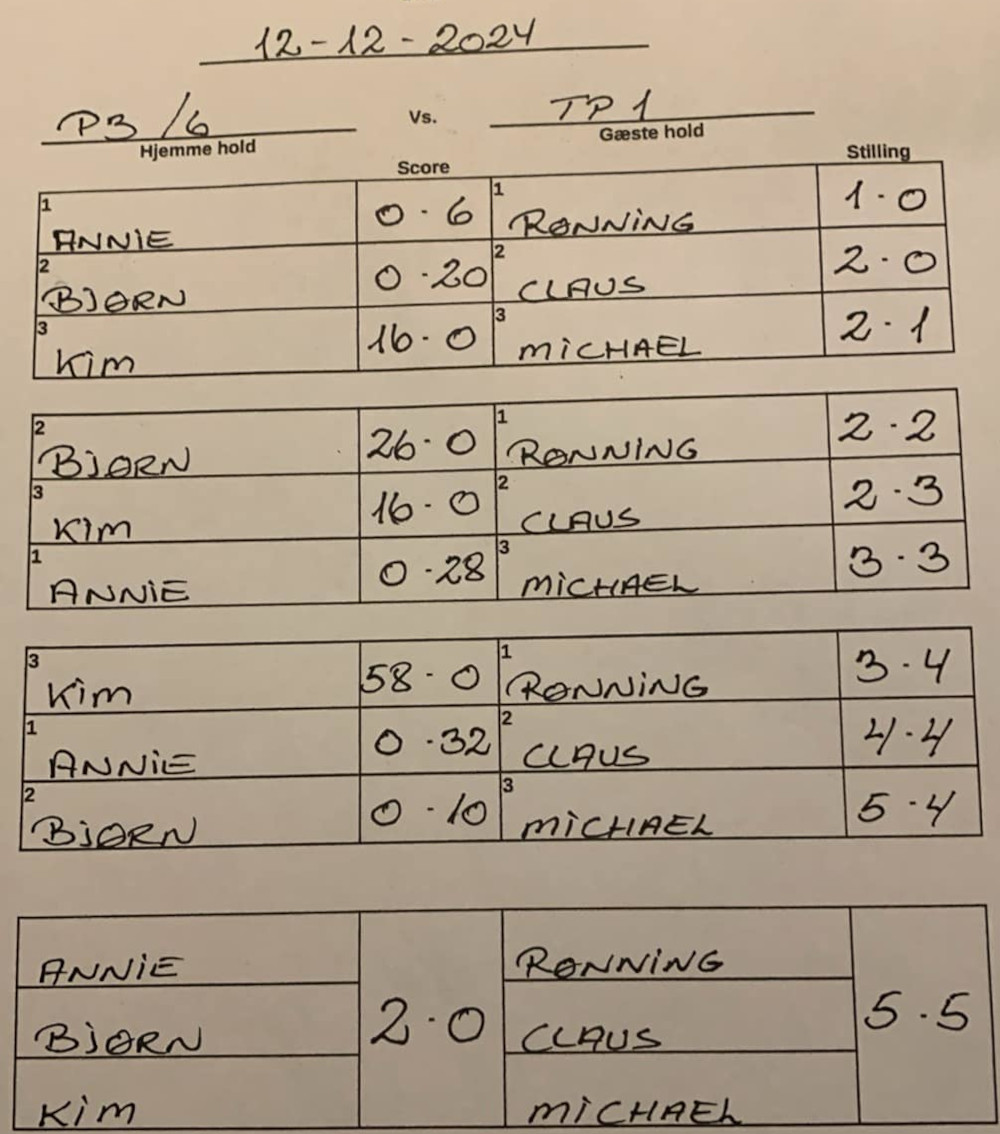 12-12-2024
P3/6 Vs. TP1
Hjemme hold Gæste hold
Score Stilling
1 ANNIE 0·6 1 RØNNING 1·0
2 BJØRN 0·20 2 CLAUS 2·0
3 Kim 16·0 3 MiCHAEL 2·1
2 BJØRN 26·0 1 RØNNING 2·2
3 Kim 16·0 2 CLAUS 2·3
1 ANNiE 0·28 3 MiCHAEL 3·3
3 Kim 58·0 1 RØNNiNG 3·4
1 ANNiE 0·32 2 CLAUS 4·4
2 BJØRN 0·10 3 MiCHAEL 5·4
ANNiE RØNNiNG
BJØRN 2·0 CLAUS 5·5
Kim MiCHAEL